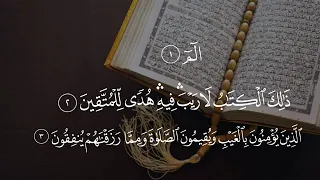 الٓمٓ ١
ذَٰلِكَ ٱلْكِتَٰبُ لَا رَيْبَ ۛ فِيهِ ۛ هُدًى لِّلْمُتَّقِينَ ٢
ٱلَّذِينَ يُؤْمِنُونَ بِٱلْغَيْبِ وَيُقِيمُونَ ٱلصَّلَوٰةَ وَمِمَّا رَزَقْنَٰهُمْ يُنفِقُونَ ٣